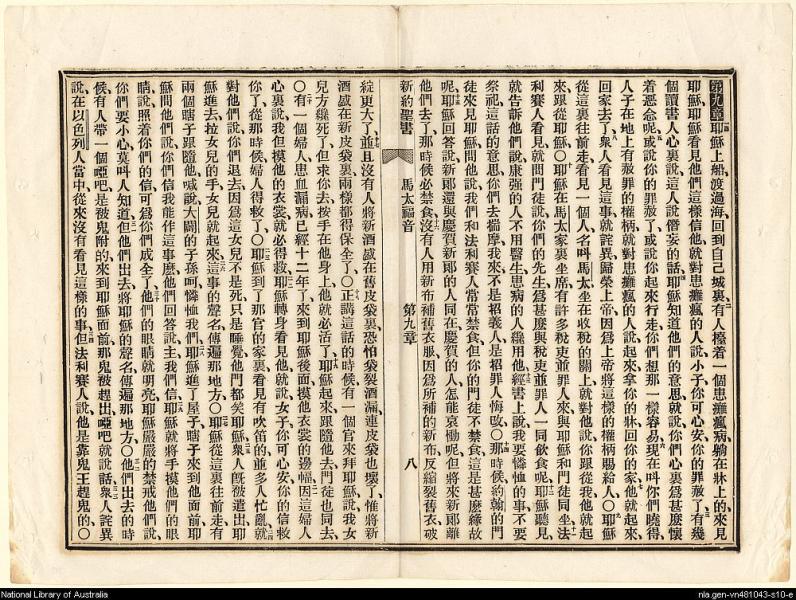 第九章耶穌上船渡過海回到自己城裏有人擡着一個患癱瘋病躺在牀上的來見
耶穌耶穌看見他們這樣信他就對患癱瘋的人說小子你可心安你的罪赦了有幾
個讀書人心裏說這人說僭妄的話耶穌知道他們的意思就說你們心裏爲甚麼懷
着惡念呢或說你的罪赦了或說你起來行走你們想那一樣容易現在叫你們曉得
人子在地上有赦罪的權柄就對患癱瘋的人說起來拿你的牀回你的家他就起來
回家去了衆人看見這事就詫異歸榮上帝因爲上帝將這樣的權柄賜給人〇耶穌
從這裏往前走看見一個人名叫馬太坐在收稅的關上就對他說你跟從我他就起
來跟從耶穌〇耶穌在馬太家裏坐席有許多稅吏並罪人來與耶穌和門徒同坐法
利賽人看見就問門徒說你們的先生爲甚麼與稅吏並罪人一同飲食呢耶穌聽見
就告訴他們說康强的人不用醫生患病的人纔用他經書上說我要憐恤的事不要
祭祀這話的意思你們去揣摩我來不是招義人是招罪人悔改〇那時候約翰的門
徒來見耶穌問他說我們和法利賽人常常禁食但你的門徒不禁食這是甚麼緣故
呢耶穌回答說新郞還與慶賀新郞的人同在慶賀的人怎能哀慟呢但將來新郞離
他們去了那時候必禁食沒有人用新布補舊衣服因爲所補的新布反縐裂舊衣破
新約聖書 馬太福音 第九章 八
綻更大了並且沒有人將新酒盛在舊皮袋裏恐怕袋裂酒漏連皮袋也壞了惟將新
酒盛在新皮袋裏兩樣都得保全了〇正講這話的時候有一個官來拜耶穌說我女
兒方纔死了但求你去按手在他身上他就必活了耶穌起來跟隨他去門徒也同去
〇有一個婦人患血漏病已經十二年了來到耶穌後面摸他衣裳的邊幅因這婦人
心裏說我但摸他的衣裳就必得救耶穌轉身看見他就說女子你可心安你的信救
你了從那時候婦人得救了〇耶穌到了那官的家裏看見有吹笛的並多人忙亂就
對他們說你們退去因爲這女兒不是死只是睡覺他們都笑耶穌衆人旣被遣出耶
穌進去拉女兒的手女兒就起來這事的聲名傳遍那地方〇耶穌從這裏往前走有
兩個瞎子跟隨他喊說大闢的子孫呵憐恤我們耶穌進了屋子瞎子來到他面前耶
穌問他們說你們信我能作這事麼他們回答說主我們信耶穌就將手摸他們的眼
睛說照着你們的信可爲你們成全了他們的眼睛就明亮耶穌嚴嚴的禁戒他們說
你們要小心莫叫人知道但他們出去將耶穌的聲名傳遍那地方〇他們出去的時
候有人帶一個啞吧是被鬼附的來到耶穌面前那鬼被趕出啞吧就說話衆人詫異
說在以色列人當中從來沒有看見這樣的事但法利賽人說他是靠鬼王趕鬼的〇
National Library of Australia
nla.gen-vn481043-s10-e